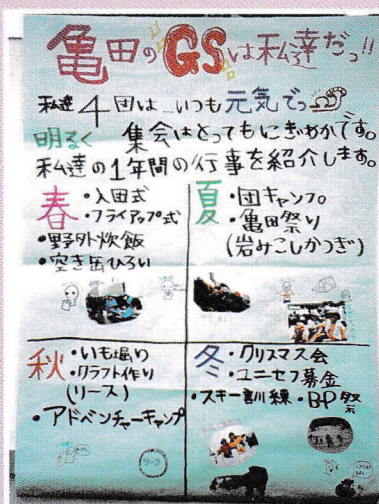 亀田のGSは私達だっ!!
私達4団は…いつも元気でっ
明るく 集会はとってもにぎやかです。
私達の1年間の行事を紹介します。
春
・入団式
・フライアップ式
・野外炊飯
・空き缶ひろい
夏
・団キャンプ
・亀田祭り
(岩みこしかつぎ)
秋
・いも堀り
・クラフト作り
(リース)
・アドベンチャーキャンプ
リース
冬
・クリスマス会
・ユニセフ募金
・スキー訓練・BP祭